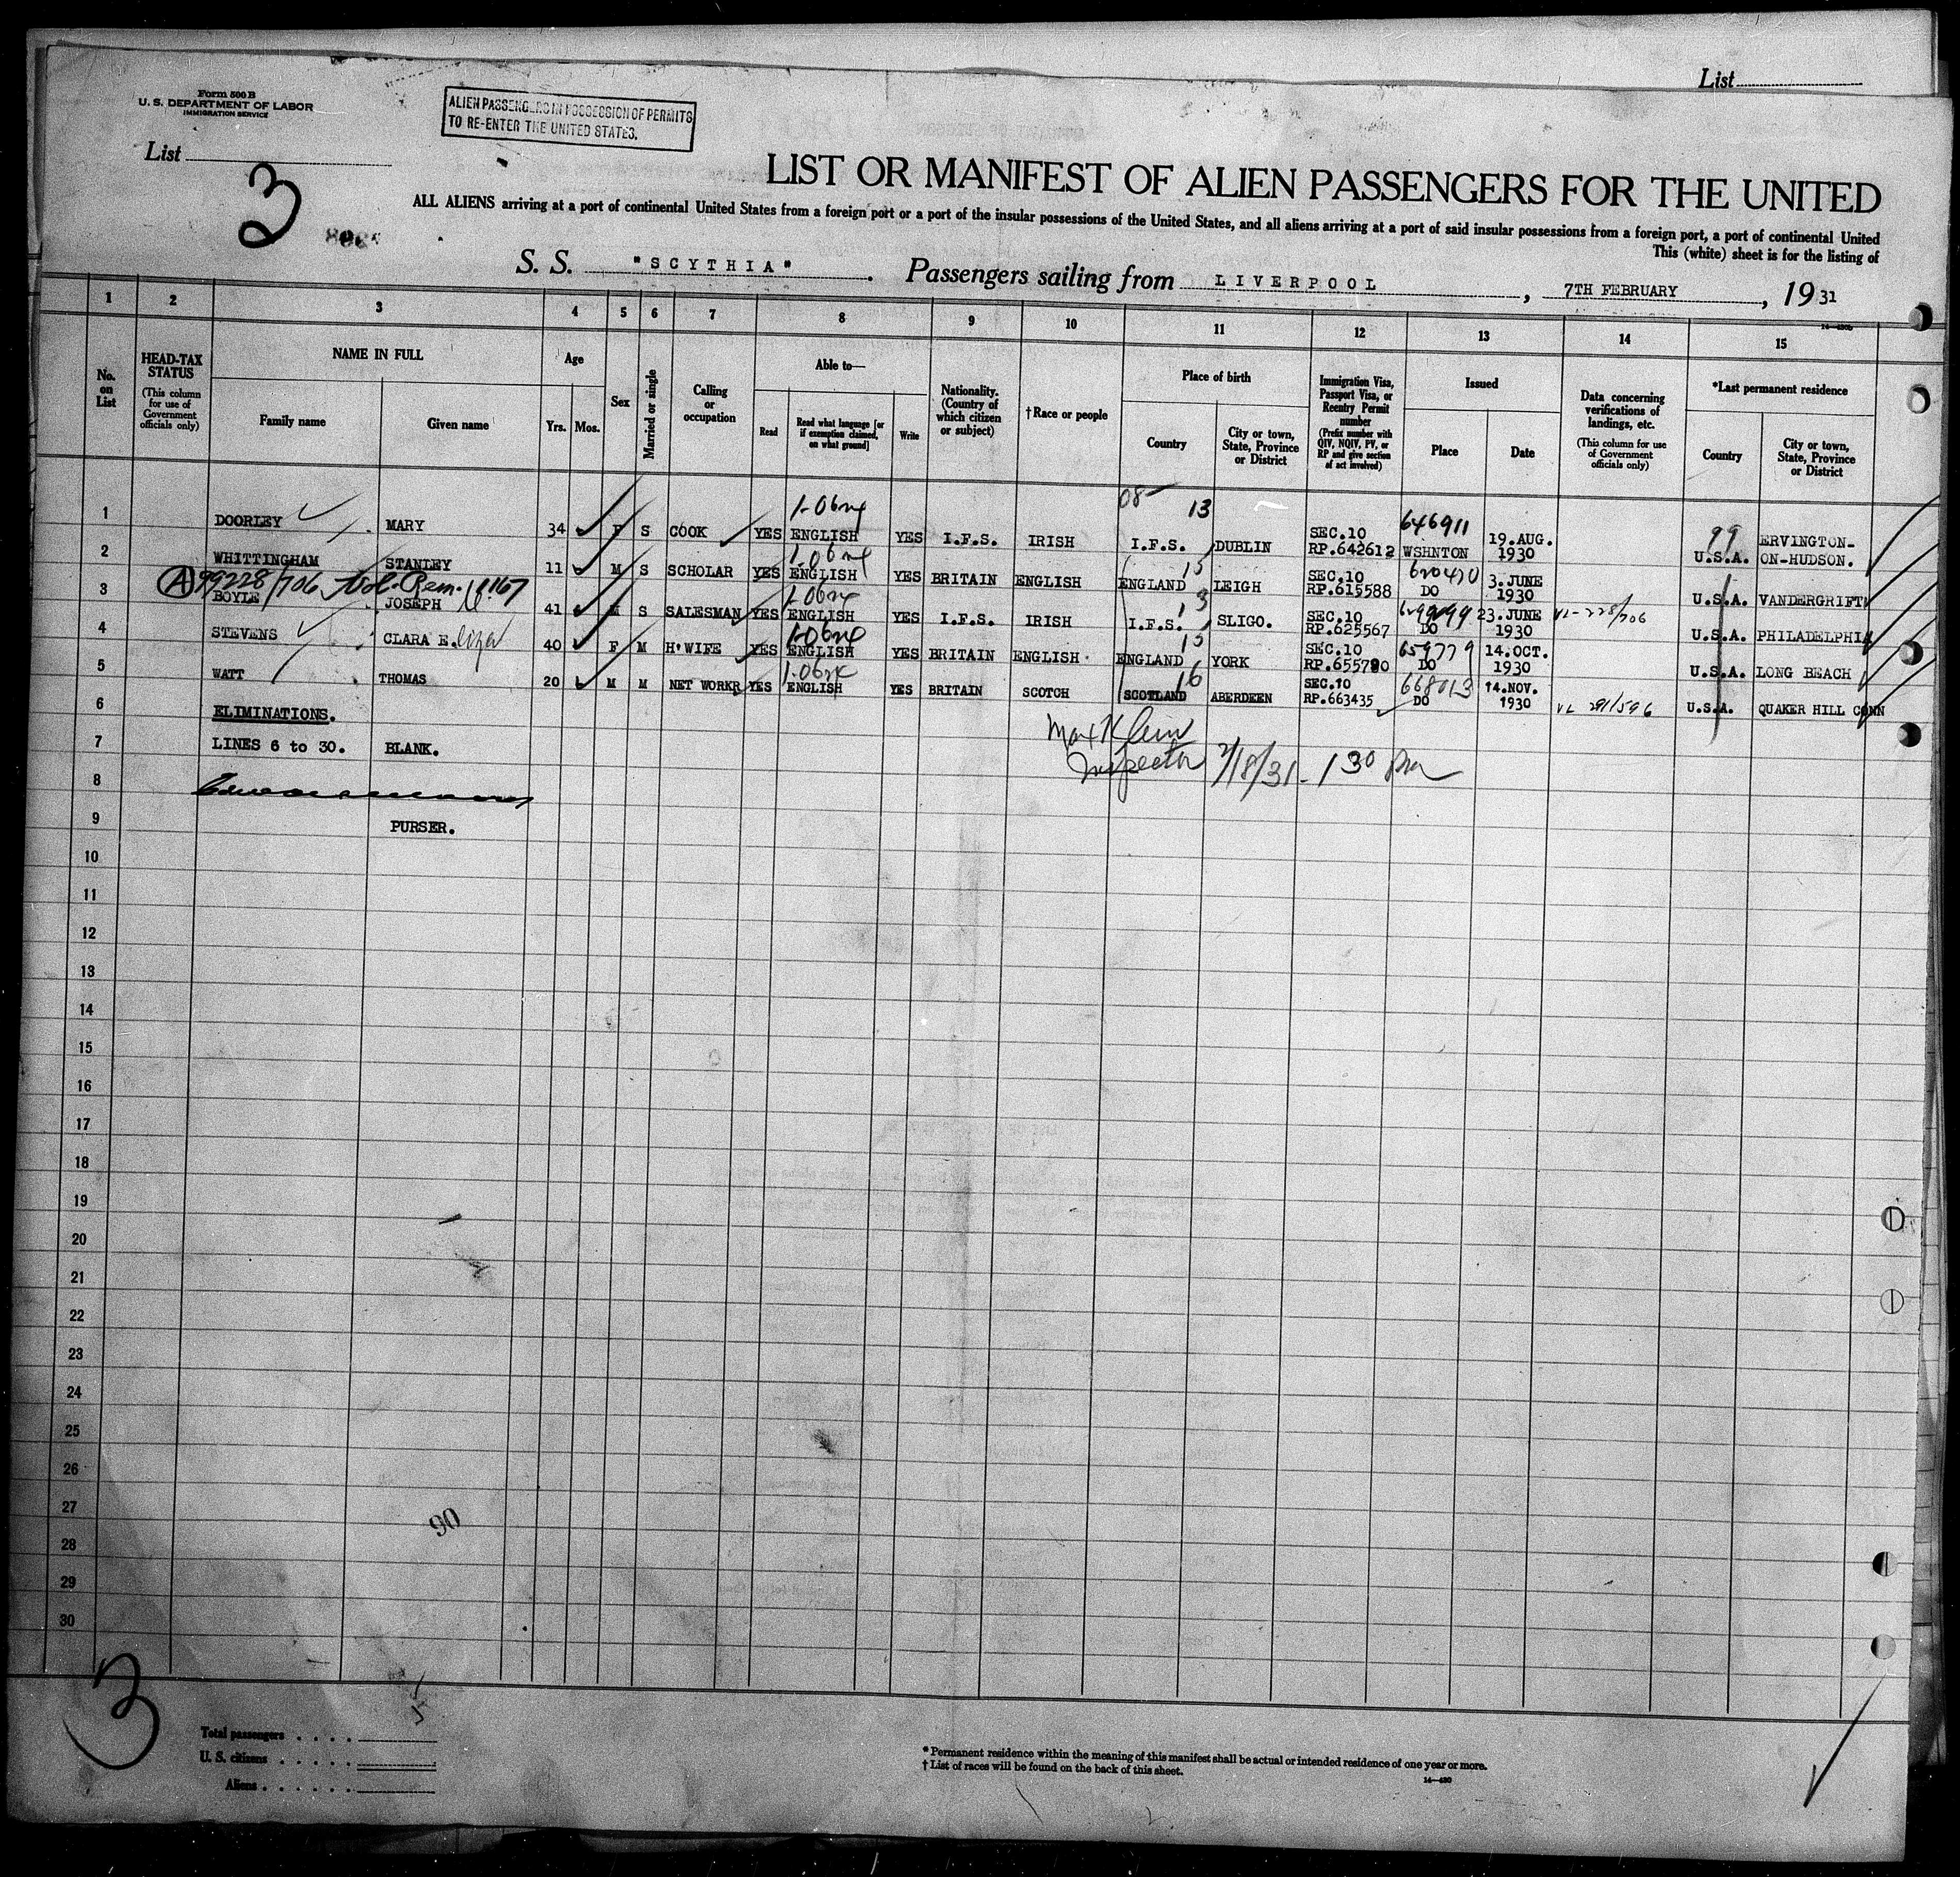 List
Form 500 B
U. S. DEPARTMENT OF LABOR
IMMIGRATION SERVICE
ALIEN PASSENGERS IN POSSESSION OF PERMITS
TO RE-ENTER THE UNITED STATES.
List
3
LIST OR MANIFEST OF ALIEN PASSENGERS FOR THE UNITED
ALL ALIENS arriving at a port of continental United States from a foreign port or a port of the insular possessions of the United States, and all aliens arriving at a port of said insular possessions from a foreign port, a port of continental United
This (white) sheet is for the listing of
S. S. "SCYTHIA". Passengers sailing from LIVERPOOL, 7TH FEBRUARY, 1931
1 2 3 4 5 6 7 8 9 10 11 12 13 14 15
No. on List
HEAD-TAX STATUS
(This column for use of Government officials only)
NAME IN FULL
Family name
Given name
Age
Yrs. Mos.
Sex
Married or single
Calling or occupation
Able to—
Read
Read what language [or if exemption claimed, on what ground]
Write
Nationality. (Country of which citizen or subject)
†Race or people
Place of birth
Country
City or town, State, Province or District
Immigration Visa, Passport Visa, or Reentry Permit number
(Prefix number with QIV, NQIV, PV, or RP and give section of act involved)
Issued
Place
Date
Data concerning verifications of landings, etc.
(This column for use of Government officials only)
*Last permanent residence
Country
City or town, State, Province or District
08 13 646911 99
1 DOORLEY MARY 34 F S COOK YES ENGLISH YES I.F.S. IRISH I.F.S. DUBLIN SEC.10 RP.642612 WSHNTON 19.AUG. 1930 U.S.A. ERVINGTON-ON-HUDSON.
15 620470
2 WHITTINGHAM STANLEY 11 M S SCHOLAR YES ENGLISH YES BRITAIN ENGLISH ENGLAND LEIGH SEC.10 RP.615588 DO 3.JUNE 1930 U.S.A. VANDERGRIFT
A 99228/706
3 BOYLE JOSEPH 41 M S SALESMAN YES ENGLISH YES I.F.S. IRISH I.F.S. SLIGO. SEC.10 RP.625567 DO 23.JUNE 1930 VL-228/706 U.S.A. PHILADELPHIA
15 659779
4 STEVENS CLARA E.liza 40 F M H'WIFE YES ENGLISH YES BRITAIN ENGLISH ENGLAND YORK SEC.10 RP.655790 DO 14.OCT. 1930 U.S.A. LONG BEACH
16 668013
5 WATT THOMAS 20 M M NET WORKR YES ENGLISH YES BRITAIN SCOTCH SCOTLAND ABERDEEN SEC.10 RP.663435 DO 14.NOV. 1930 VL 291/596 U.S.A. QUAKER HILL CONN
6 ELIMINATIONS.
Max Klein
7 LINES 6 to 30. BLANK.
Inspector 2/18/31 - 1 30 pm
8
9 PURSER.
10
11
12
13
14
15
16
17
18
19
20
21
22
23
24
25
26
27
90
28
29
30
3
Total passengers
U. S. citizens
Aliens
* Permanent residence within the meaning of this manifest shall be actual or intended residence of one year or more.
† List of races will be found on the back of this sheet.
14—430